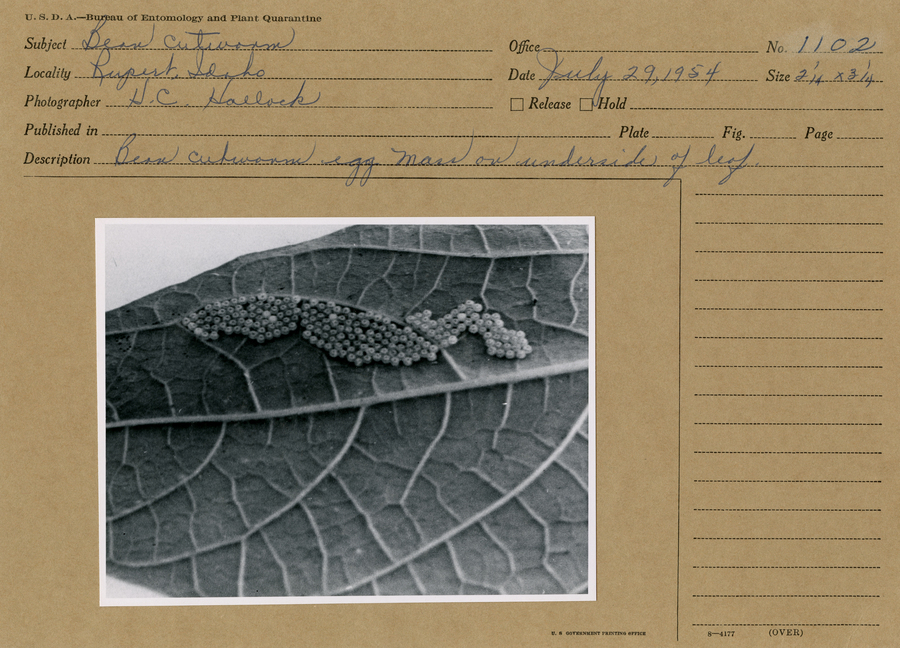 U. S. D. A.—Bureau of Entomology and Plant Quarantine
Subject Bean cutworm Office No. 1102
Locality Rupert, Idaho Date July 29, 1954 Size 2 1/4 x 3 1/4
Photographer H.C. Hallock Release Hold
Published in Plate Fig. Page
Description Bean cutworm egg mass on underside of leaf.
U. S. GOVERNMENT PRINTING OFFICE 8—4177 (OVER)